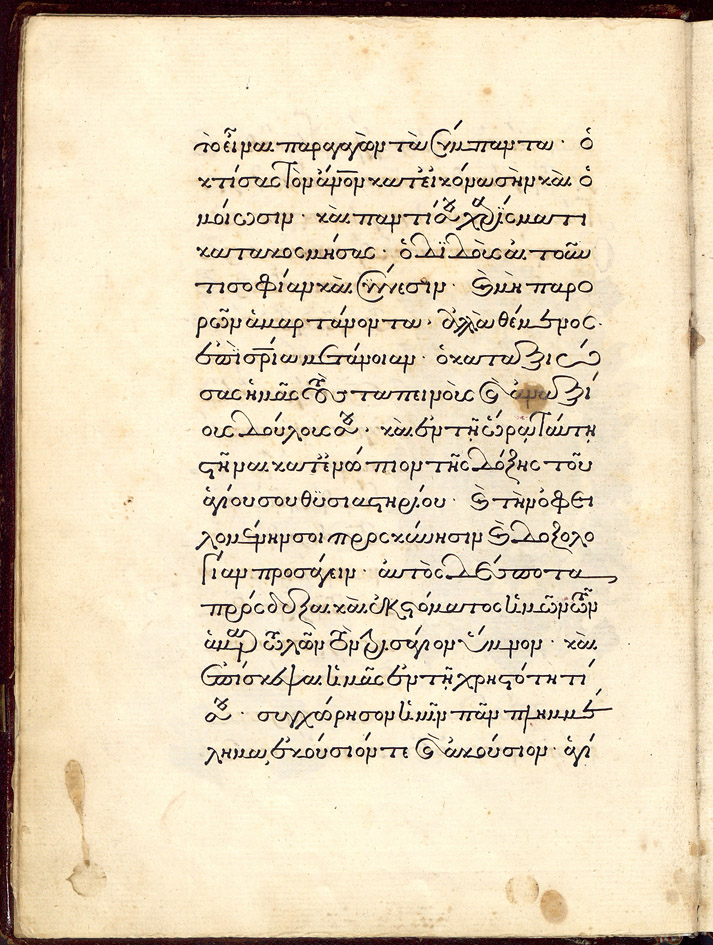 τὸ εἶναι παραγαγὼν τὰ σύμπαντα· ὁ
κτίσας τὸν ἄνον κατ' εἰκόνα σὴν καὶ ὁ
μοίωσιν· καὶ παντί σου χαρίσματι
κατακοσμήσας· ὁ διδοὺς αἰτοῦν
τι σοφίαν καὶ σύνεσιν· καὶ μὴ παρο
ρῶν ἁμαρτάνοντα, ἀλλὰ θέμενος
ἐπὶ σρίᾳ μετάνοιαν· ὁ καταξιώ
σας ἡμᾶς τοὺς ταπεινοὺς καὶ ἀναξί
ους δούλους σου· καὶ ἐν τῇ ὥρᾳ ταύτη
στῆναι κατενώπιον τῆς δόξης τοῦ
ἁγίου σου θυσιαστηρίου· καὶ τὴν ὀφει
λομένην σοι προσκύνησιν καὶ δοξολο
γίαν προσάγειν· αὐτὸς δέσποτα
πρόσδεξαι καὶ ἐκ στόματος ἡμῶν τῶν
ἁμαρτωλῶν τὸν τρισάγιον ὕμνον· καὶ
ἐπίσκεψαι ἡμᾶς ἐν τῇ χρηστότητί
σου· συγχώρησον ἡμῖν πᾶν πλημμέ
λημα, ἑκούσιόν τε καὶ ἀκούσιον· ἁγί